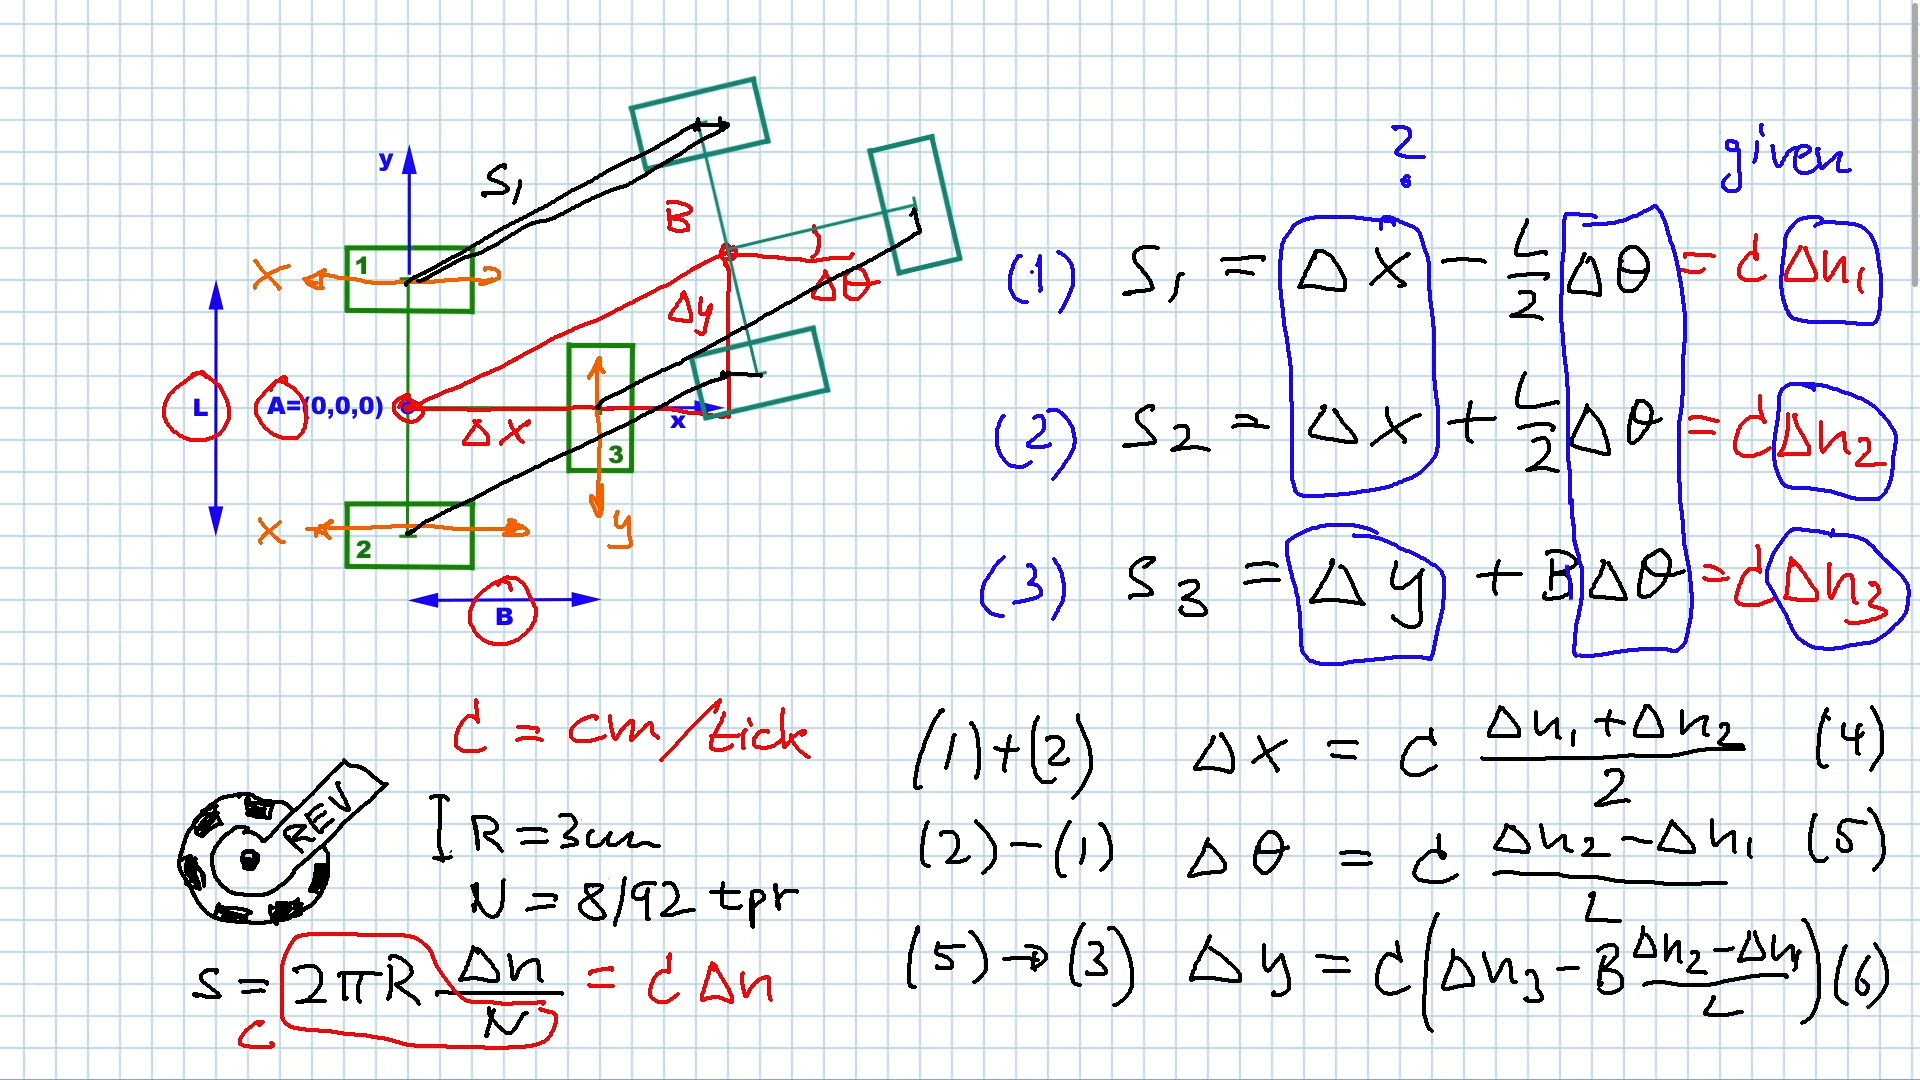 y
S₁
1
X
B
Δy
Δθ
L
A=(0,0,0)
ΔX
x
3
X
2
y
B
? given
(1) S₁ = ΔX - L/2 Δθ = c Δn₁
(2) S₂ = ΔX + L/2 Δθ = c Δn₂
(3) S₃ = Δy + B Δθ = c Δn₃
c = cm/tick
REV
R = 3cm
N = 8192 tpr
S = 2πR Δn/N = c Δn
c
(1)+(2) ΔX = c (Δn₁+Δn₂)/2 (4)
(2)-(1) Δθ = c (Δn₂-Δn₁)/L (5)
(5)→(3) Δy = c(Δn₃-B (Δn₂-Δn₁)/L) (6)